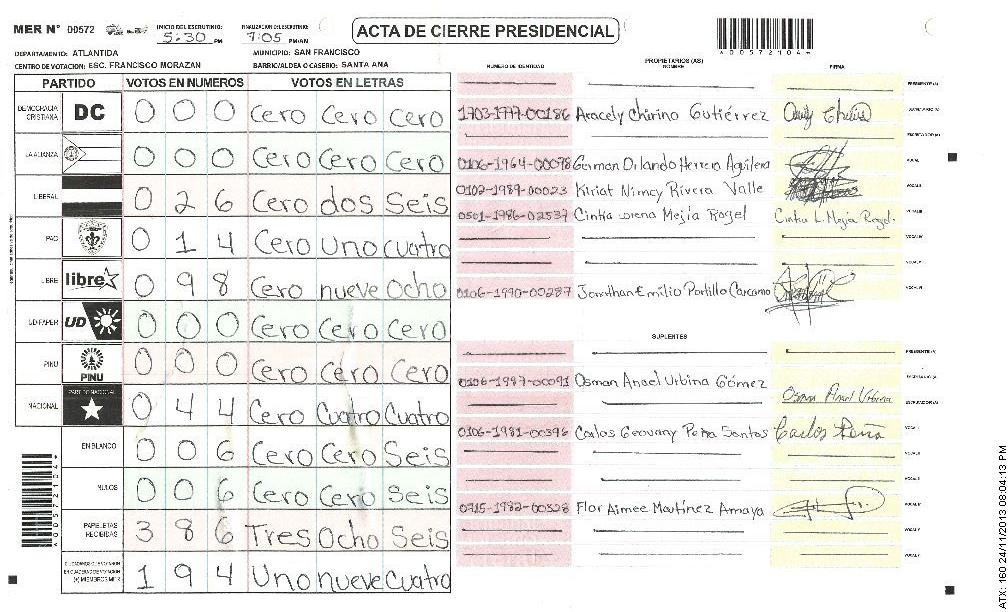 MER Nº 00572 INICIO DEL ESCRUTINIO: 5:30 PM FINALIZACION DEL ESCRUTINIO: 7:05 PM/AN ACTA DE CIERRE PRESIDENCIAL
*005721044*
DEPARTAMENTO: ATLANTIDA MUNICIPIO: SAN FRANCISCO
CENTRO DE VOTACION: ESC. FRANCISCO MORAZAN BARRIO/ALDEA O CASERIO: SANTA ANA
PARTIDO VOTOS EN NUMEROS VOTOS EN LETRAS
DEMOCRACIA CRISTIANA DC 0 0 0 Cero Cero Cero
LA ALIANZA 0 0 0 Cero Cero Cero
LIBERAL 0 2 6 Cero dos Seis
PAC 0 1 4 Cero Uno cuatro
LIBRE libre 0 9 8 Cero nueve Ocho
UD-FAPER UD 0 0 0 Cero Cero Cero
PINU PINU 0 0 0 Cero Cero Cero
NACIONAL PARTIDO NACIONAL 0 4 4 Cero Cuatro Cuatro
EN BLANCO 0 0 6 Cero Cero Seis
NULOS 0 0 6 Cero Cero Seis
PAPELETAS RECIBIDAS 3 8 6 Tres Ocho Seis
1 9 4 Uno nueve Cuatro
PROPIETARIOS (AS)
NUMERO DE IDENTIDAD NOMBRE FIRMA
PRESIDENTE (A)
1703-1977-00186 Aracely Chirino Gutiérrez SECRETARIO (A)
ESCRUTADOR (A)
0106-1964-00098 German Orlando Herrera Aguilera VOCAL I
0102-1989-00023 Kiriat Nimcy Rivera Valle VOCAL II
0501-1986-02537 Cintia Lorena Mejía Rogel Cintia L. Mejía Rogel. VOCAL III
VOCAL IV
VOCAL V
0106-1990-00287 Jonathan Emilio Portillo Carcamo VOCAL VI
SUPLENTES
PRESIDENTE (A)
0106-1987-00091 Osman Anael Urbina Gómez Osman Anael Urbina SECRETARIO (A)
ESCRUTADOR (A)
0106-1981-00396 Carlos Geovany Peña Santos Carlos Peña VOCAL I
VOCAL II
VOCAL III
0715-1982-00328 Flor Aimee Martínez Amaya VOCAL IV
VOCAL V
VOCAL VI
*005721044*
ATX: 160 24/11/2013 08:04:13 PM